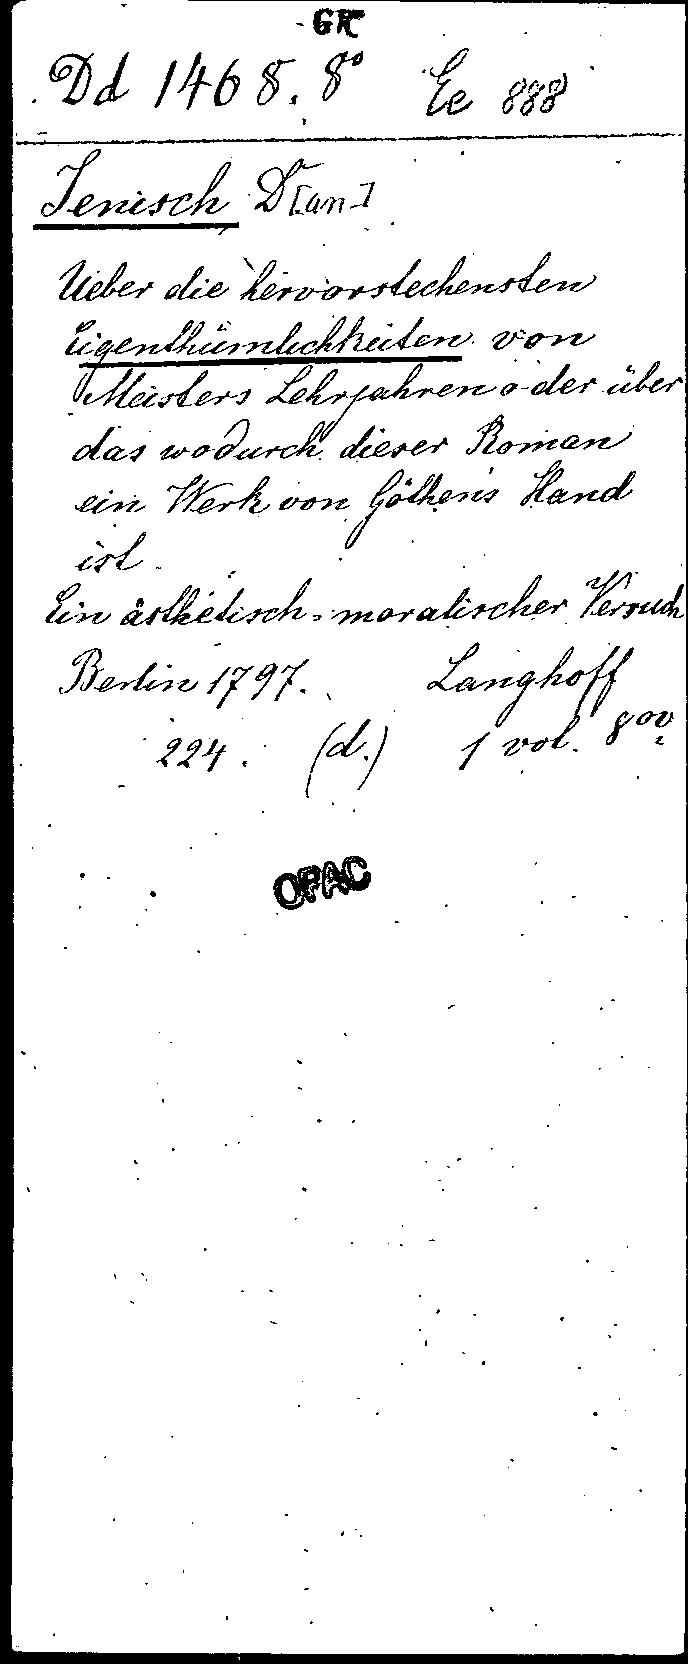 GK
Dd 1468. 8° Ee 888
Jenisch D[an-]
Ueber die hervorstechensten
Eigenthümlichkeiten von
Meisters Lehrjahren oder über
das wodurch dieser Roman
ein Werk von Göthens Hand
ist.
Ein ästhetisch=moralischer Versuch
Berlin 1797. Langhoff
224. (d.) 1 vol. 8ov.
OPAC